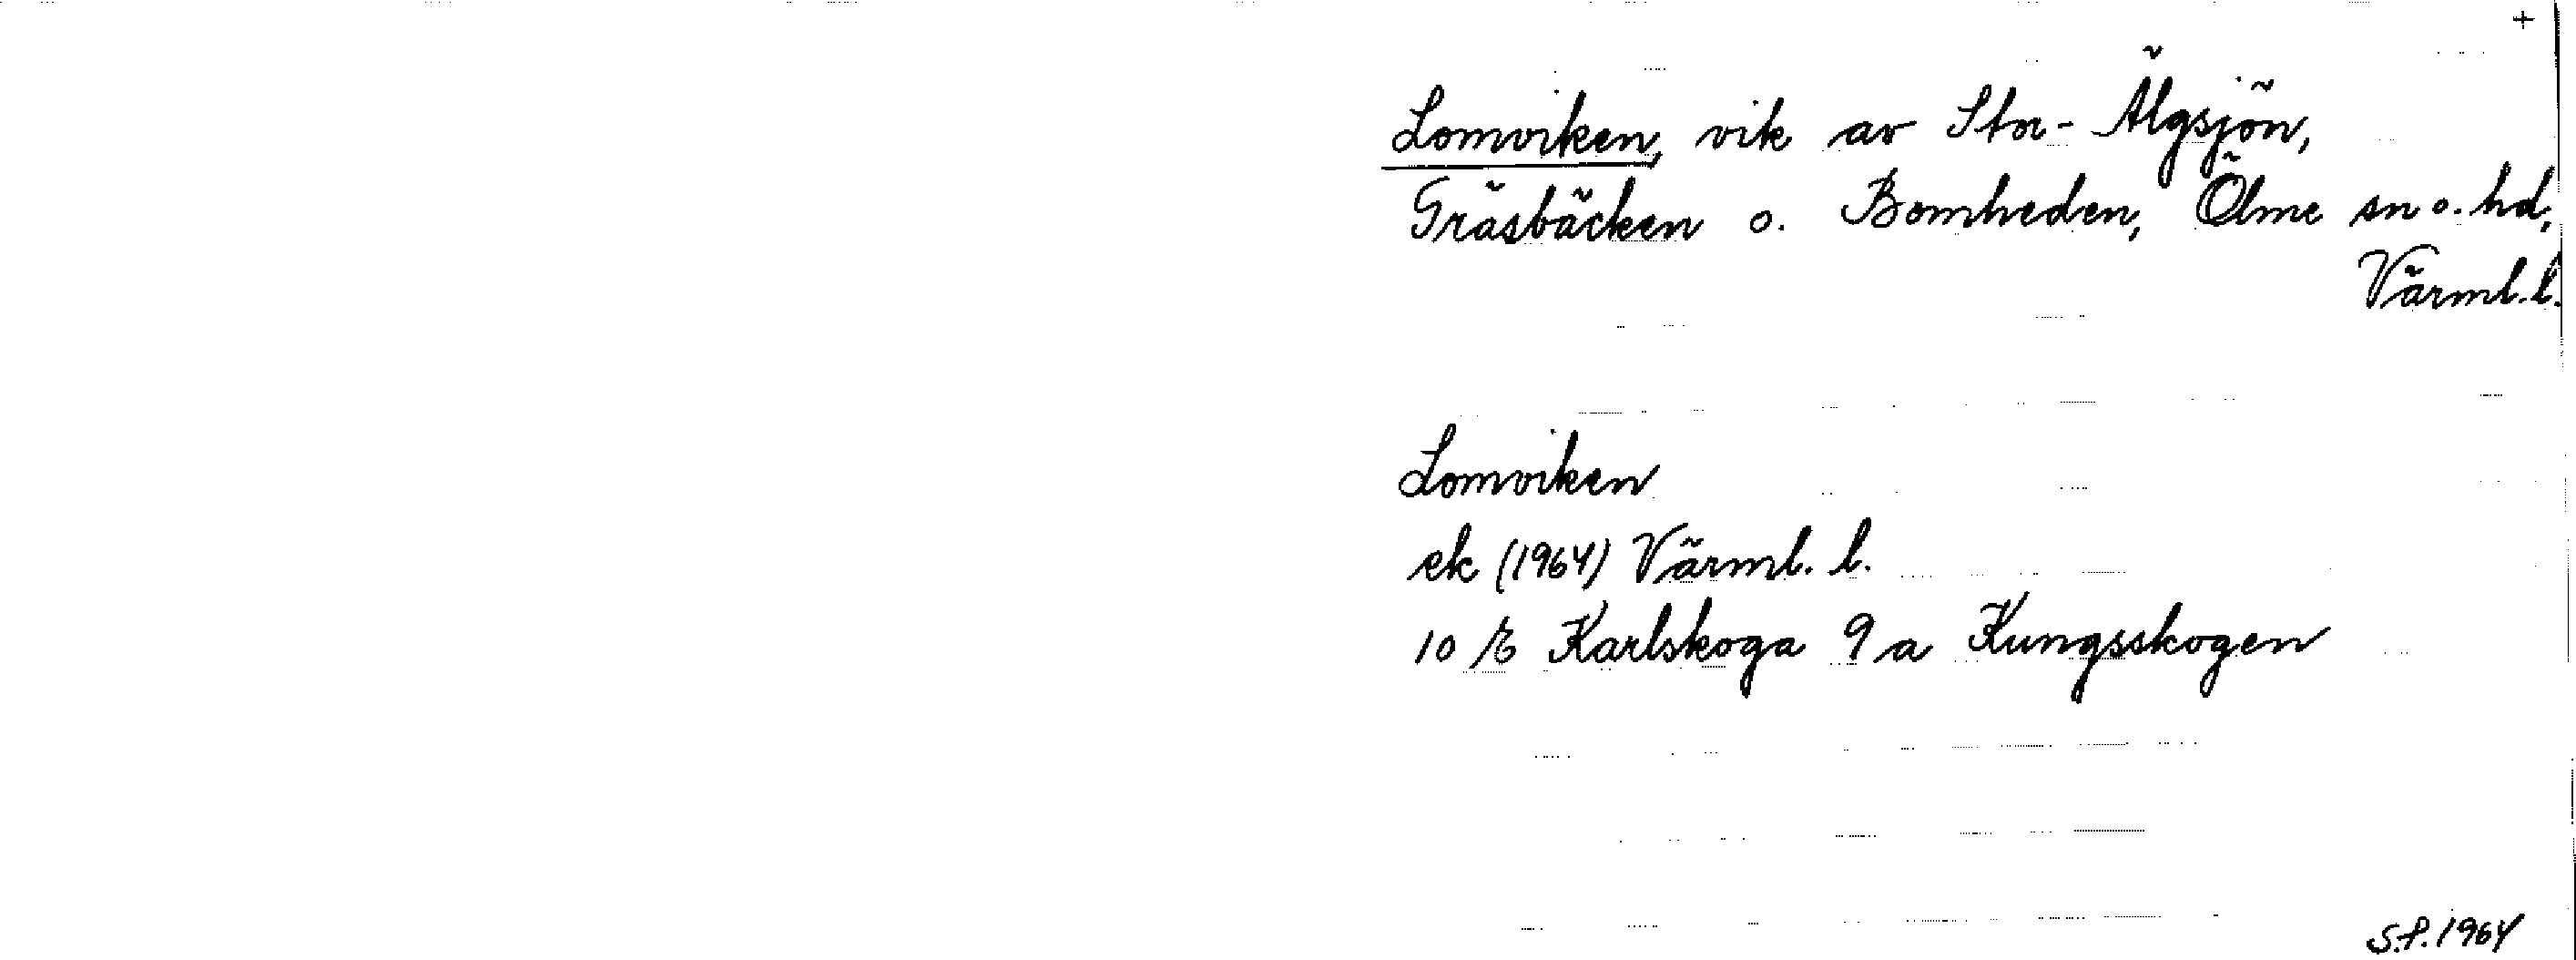 +
Lomviken, vik av Stor-Älgsjön,
Gräsbäcken o. Bomheden, Ölme sn o. hd,
Värml. l.
Lomviken
ek (1964) Värml. l.
10 E Karlskoga 9 a Kungsskogen
S.P. 1964